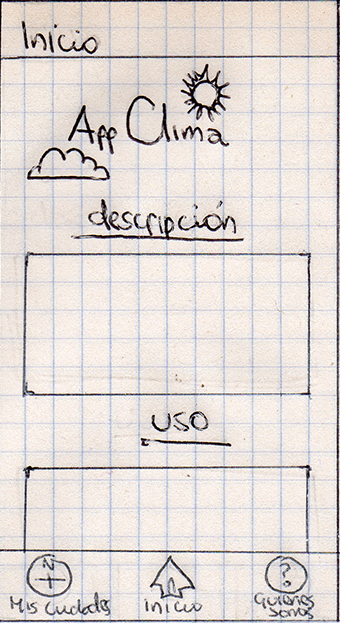 Inicio
App Clima
descripción
uso
N
?
Mis Ciudades
inicio
Quienes
somos